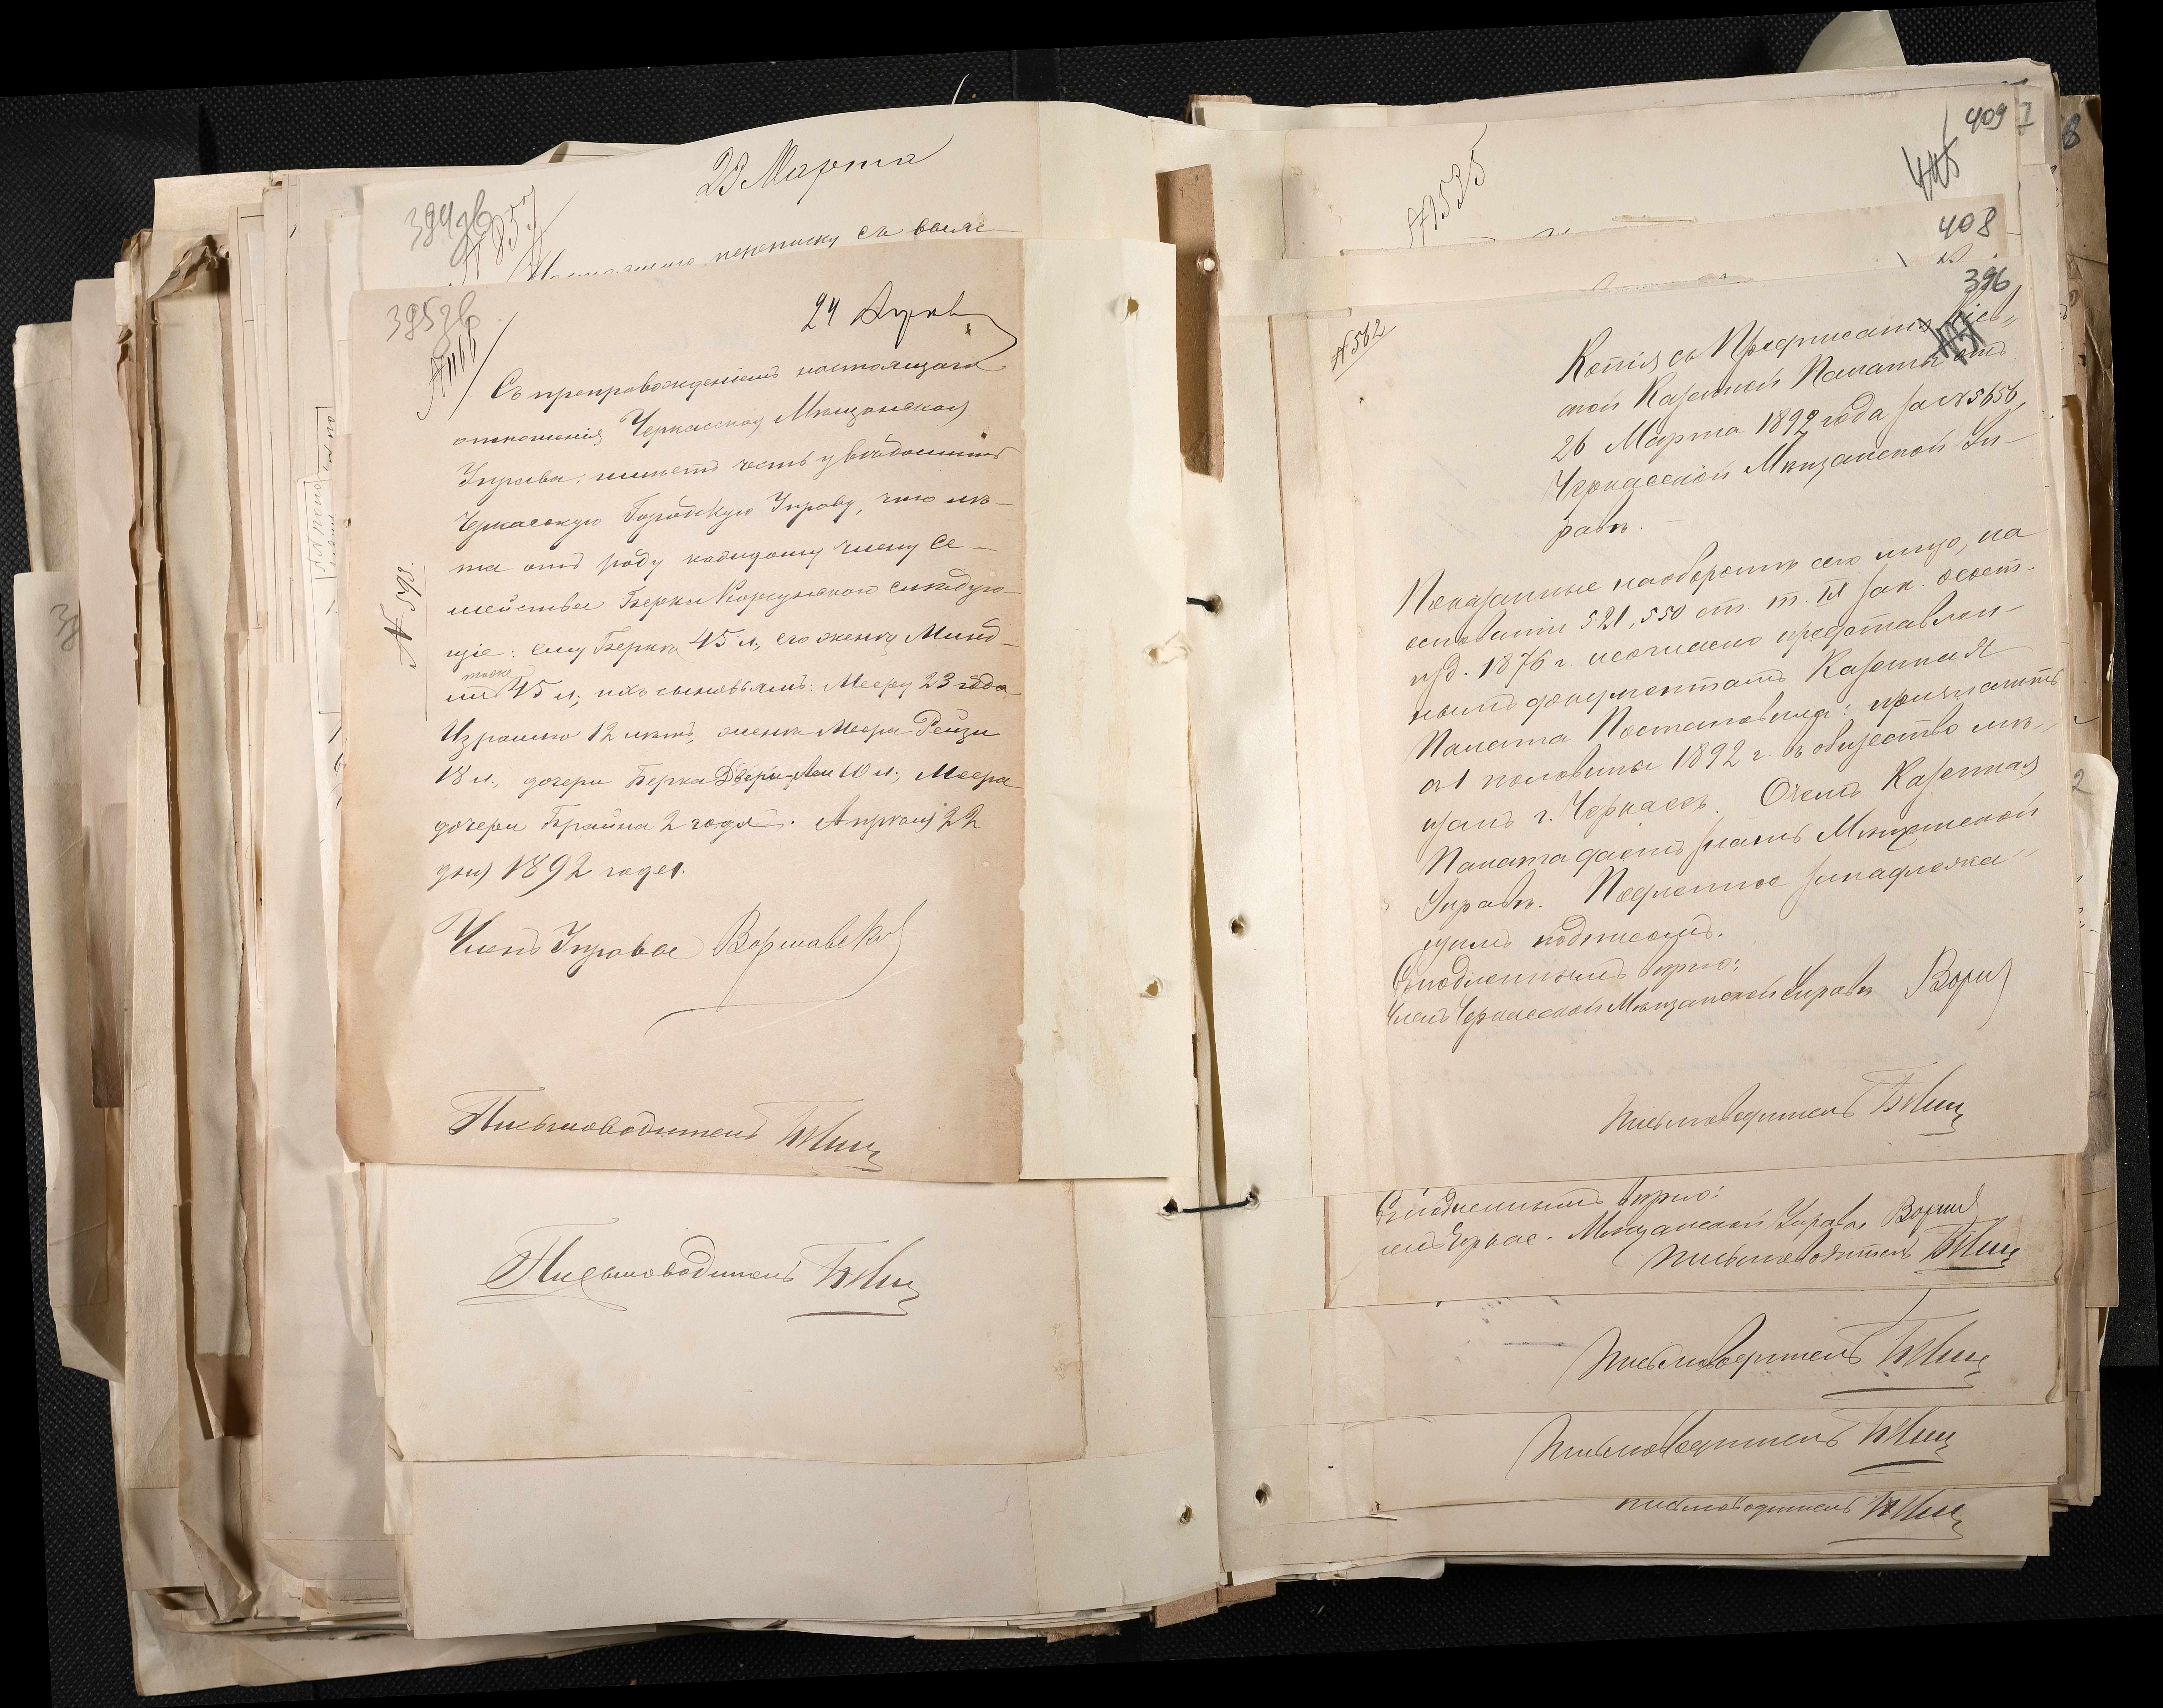 23 Марта
394 об
№ 857
переписку съ
395 об
№ 1166
24 Апрѣля
Съ препровожденіемъ настоящаго
отношенія Черкасская Мѣщанская
Управа имѣетъ честь увѣдомить
Черкасскую Городскую Управу, что лѣ-
та отъ роду каждому члену Се-
мейства Берки Корсунского слѣдую-
№ 598.
щіе: ему Беркѣ 45 л., его женѣ Минд-
ли тоже 45 л., ихъ сыновьямъ: Мееру 23 года
Израилю 12 лѣтъ, женѣ Меера Рейзи
18 л., дочери Берки Двери-Леи 10 л., Меера
дочери Брайна 2 года. Апрѣля 22
дня 1892 года.
Членъ Управы Варшавскій
Письмоводитель
Письмоводитель
409
405
№ 1535
408
396
№ 562
Копія съ Предписанія Кіев-
ской Казенной Палаты отъ
26 Марта 1892 года за № 5656,
Черкасской Мѣщанской Уп-
равѣ.
Показанные на оборотѣ сего лица, на
основаніи 521, 550 ст. т. IX зак. о сост.
изд. 1876 г. и согласно представлен-
нымъ документамъ Казенная
Палата Постановила: причислить
съ 1 половины 1892 г. въ общество мѣ-
щанъ г. Черкассъ. О чемъ Казенная
Палата даетъ знать Мѣщанской
Управѣ. Подлинное за надлежа-
щимъ подписомъ.
Съ подлиннымъ вѣрно:
Членъ Черкасской Мѣщанской Управы
Письмоводитель
Съ подлиннымъ вѣрно:
Черкас. Мѣщанской Управы
Письмоводитель
Письмоводитель
Письмоводитель
Письмоводитель